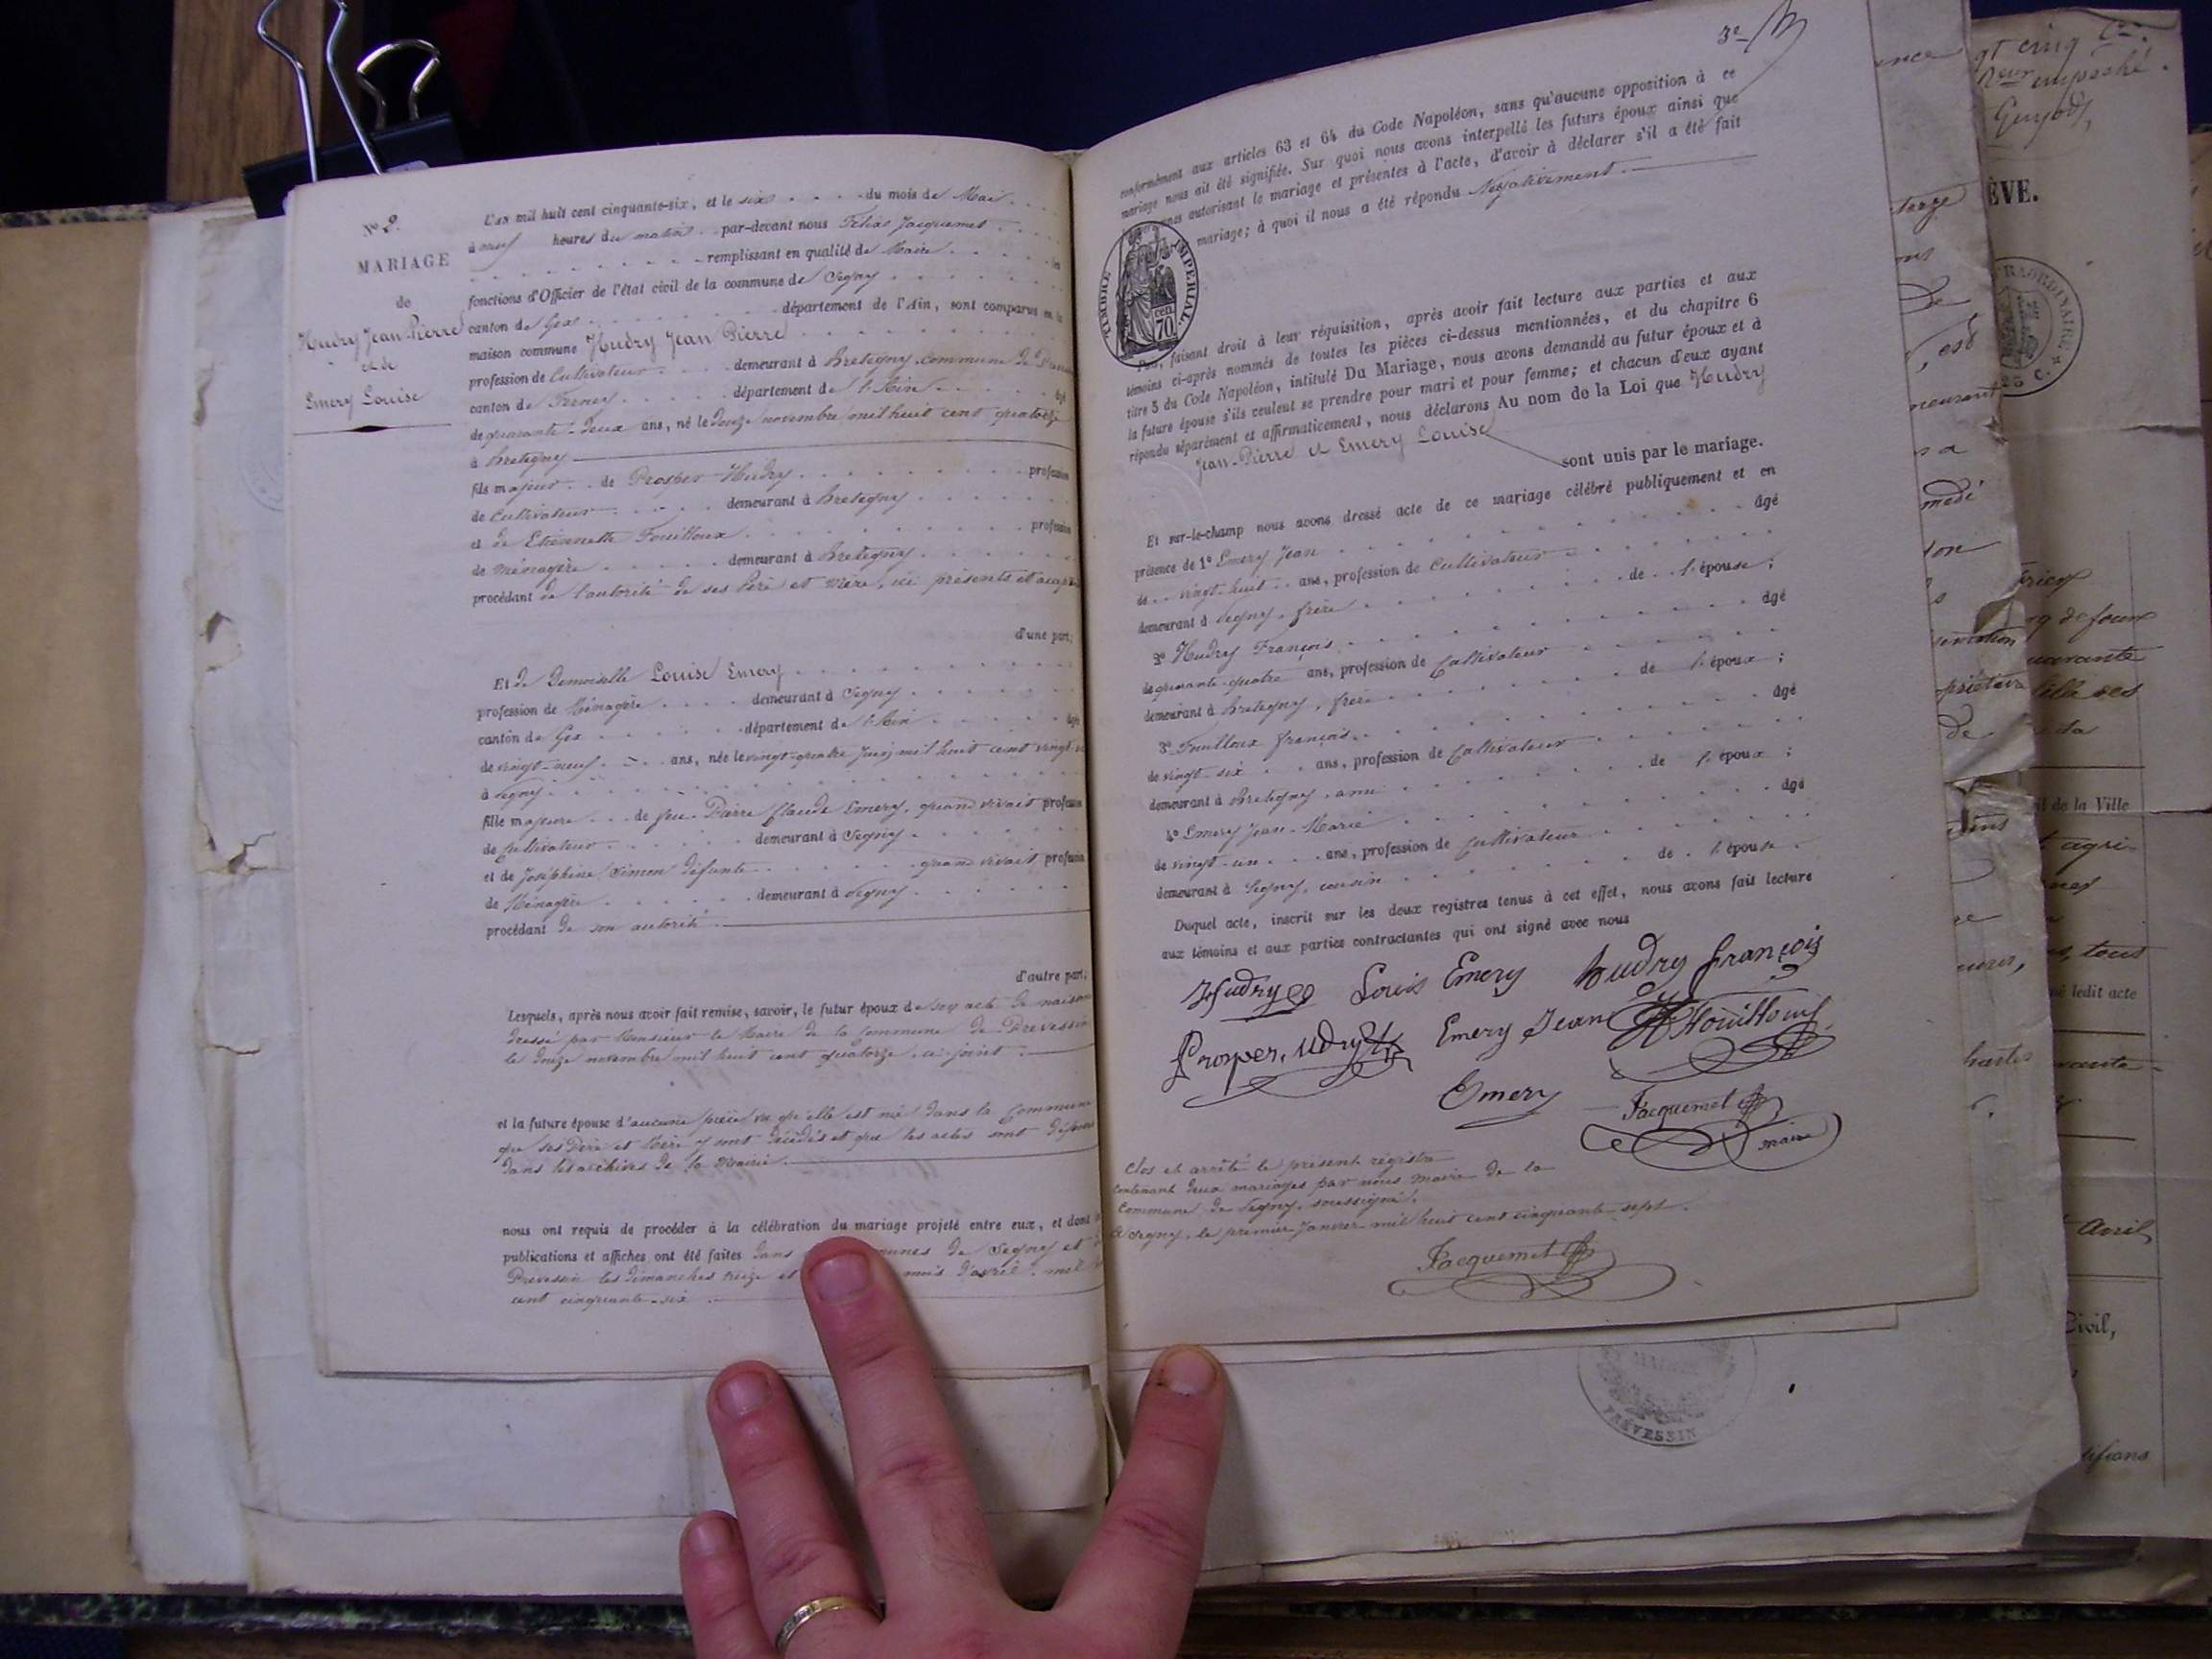 No 2.
MARIAGE
de
Hudry Jean-Pierre
et de
Emery Louise
L'an mil huit cent cinquante-six, et le six du mois de Mai
à neuf heures du matin par-devant nous Jacquemet
remplissant en qualité de Maire les
fonctions d'Officier de l'état civil de la commune de Segny
canton de Gex département de l'Ain, sont comparus en la
maison commune Hudry Jean Pierre
profession de Cultivateur demeurant à Bretigny, commune de
canton de Ferney département de l'Ain âgé
de quarante-deux ans, né le douze novembre mil huit cent quatorze
à Bretigny
fils majeur de Prosper Hudry profession
de Cultivateur demeurant à Bretigny
et de Etiennette Fouilloux profession
de Ménagère demeurant à Bretigny
procédant de l'autorité de ses Père et Mère, ici présents et
d'une part;
Et de Demoiselle Louise Emery
profession de Ménagère demeurant à Segny
canton de Gex département de l'Ain âgée
de vingt-neuf ans, née le vingt-quatre mil huit cent vingt
à Segny
fille majeure de feu Pierre Claude Emery, quand vivait profession
de Cultivateur demeurant à Segny
et de Joséphine Simon défunte quand vivait profession
de Ménagère demeurant à Segny
procédant de son autorité
d'autre part;
Lesquels, après nous avoir fait remise, savoir, le futur époux de son acte de naissance
dressé par Monsieur le Maire de la Commune de Prévessin
le douze novembre mil huit cent quatorze, ci-joint
et la future épouse d'aucune pièce vu qu'elle est née dans la Commune
que ses Père et Mère y sont décédés et que les actes sont déposés
dans les archives de la Mairie
nous ont requis de procéder à la célébration du mariage projeté entre eux, et dont
publications et affiches ont été faites dans de Segny et
Prévessin les dimanches treize et mois d'avril mil
cent cinquante-six
3e
conformément aux articles 63 et 64 du Code Napoléon, sans qu'aucune opposition à ce
mariage nous ait été signifiée. Sur quoi nous avons interpellé les futurs époux ainsi que
autorisant le mariage et présentes à l'acte, d'avoir à déclarer s'il a été fait
mariage; à quoi il nous a été répondu Négativement.
TIMBRE IMPERIAL
70 cen
faisant droit à leur réquisition, après avoir fait lecture aux parties et aux
témoins ci-après nommés de toutes les pièces ci-dessus mentionnées, et du chapitre 6
titre 5 du Code Napoléon, intitulé Du Mariage, nous avons demandé au futur époux et à
la future épouse s'ils veulent se prendre pour mari et pour femme; et chacun d'eux ayant
répondu séparément et affirmativement, nous déclarons Au nom de la Loi que Hudry
Jean-Pierre et Emery Louise
sont unis par le mariage.
Et sur-le-champ nous avons dressé acte de ce mariage célébré publiquement et en
présence de 1° Emery Jean âgé
de vingt-huit ans, profession de Cultivateur
demeurant à Segny, frère de l'épouse;
2° Hudry François âgé
de quarante-quatre ans, profession de Cultivateur
demeurant à Bretigny, frère de l'époux;
3° Fouilloux françois âgé
de vingt-six ans, profession de Cultivateur
demeurant à Bretigny, ami de l'époux;
4° Emery Jean-Marie âgé
de vingt-un ans, profession de Cultivateur
demeurant à Segny, cousin de l'épouse.
Duquel acte, inscrit sur les deux registres tenus à cet effet, nous avons fait lecture
aux témoins et aux parties contractantes qui ont signé avec nous
Hudry Louis Emery hudry françois
Prosper udry Emery Jean fouilloux
Emery Jacquemet
maire
Clos et arrêté le présent registre
contenant deux mariages par nous maire de la
Commune de Segny, soussigné.
A Segny, le premier Janvier mil huit cent cinquante-sept.
Jacquemet
MAIRIE
PRÉVESSIN
gt cinq
empeché
Guyod,
ÈVE.
il de la Ville
ledit acte
Avril,
Civil,